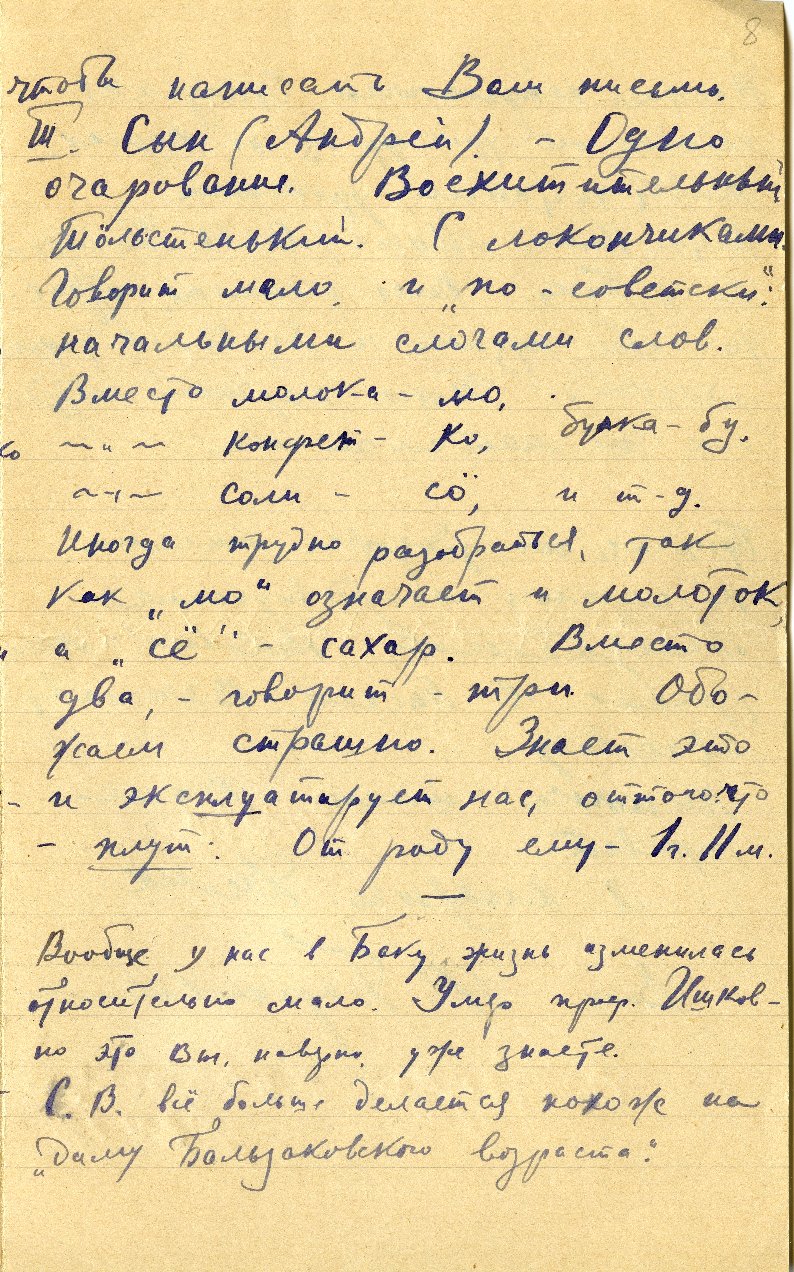 8
чтобы написать Вам письмо.
III. Сын (Андрей). – Одно
очарование. Восхитительный
Толстенький. С локончиками.
Говорит мало, и „по-советски":
начальными слогами слов.
Вместо молока – мо,
–„– конфет – ко, булка – бу.
–„– соли – сё, и т-д.
Иногда трудно разобраться, так
как „мо" означает и молоток,
а „сё" – сахар. Вместо
два, – говорит – три. Обо-
жаем страшно. Знает это
и эксплуатирует нас, оттого что
– плут. От роду ему – 1 г. 11 м.
—
Вообще, у нас в Баку жизнь изменилась
относительно мало. Умер проф. Ишков –
но это Вы, наверно, уже знаете.
С. В. всё больше делается похож на
„даму Бальзаковского возраста".